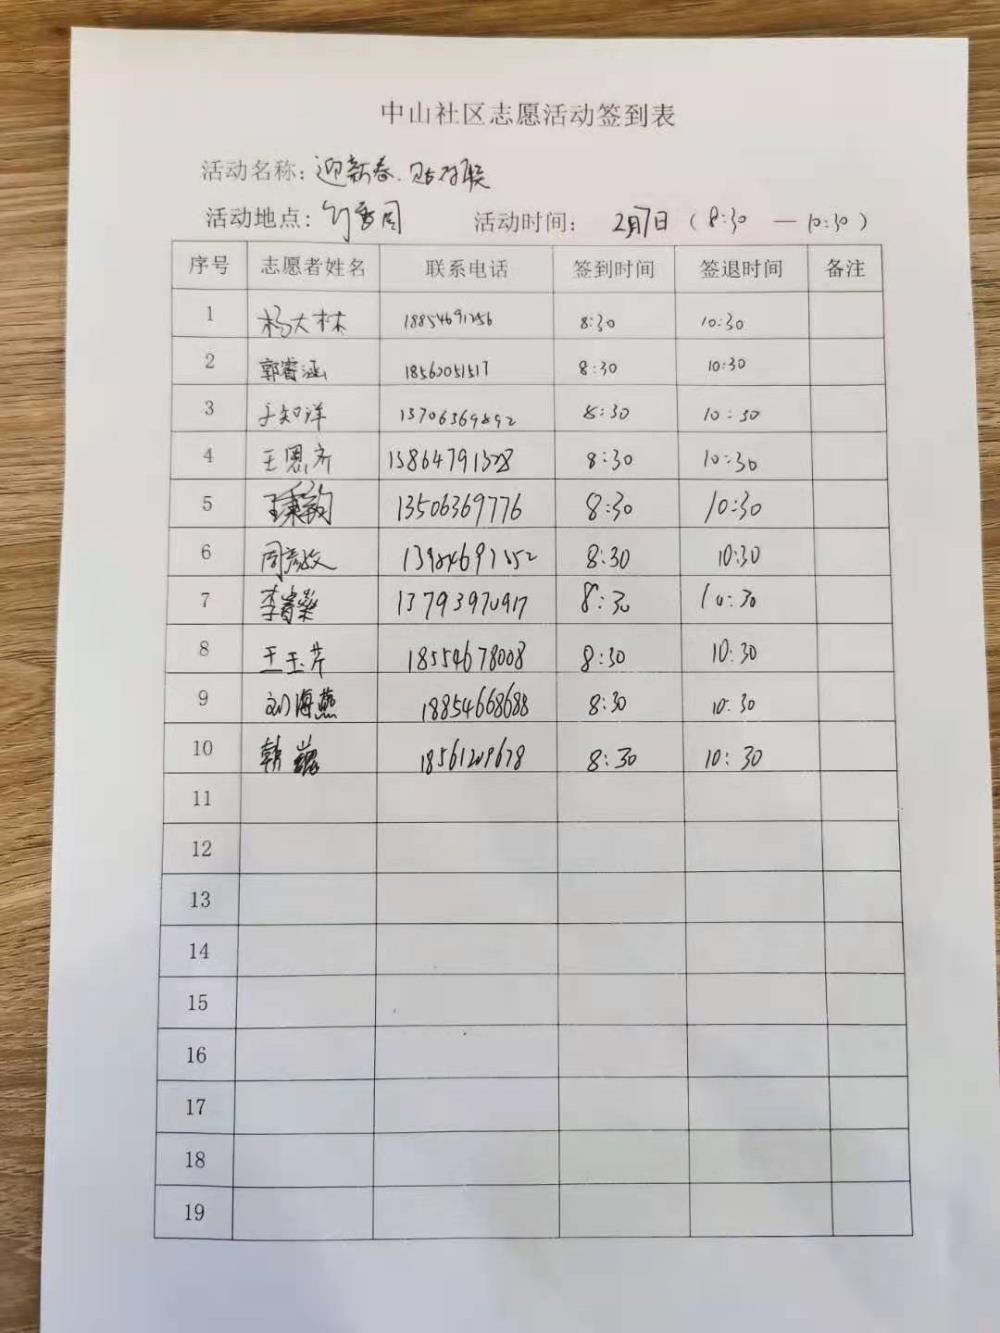 中山社区志愿活动签到表
活动名称：迎新春.贴对联
活动地点： 活动时间： 2月7日（8:30 — 10:30）
序号 志愿者姓名 联系电话 签到时间 签退时间 备注
1 杨大林 18854691256 8:30 10:30
2 郭睿涵 18562051517 8:30 10:30
3 于知洋 13706369892 8:30 10:30
4 王恩齐 15864791328 8:30 10:30
5 13506369776 8:30 10:30
6 周彦敏 8:30 10:30
7 李睿燊 13793970917 8:30 10:30
8 王玉芹 18554678008 8:30 10:30
9 刘海燕 18854668688 8:30 10:30
10 韩 18561209678 8:30 10:30
11
12
13
14
15
16
17
18
19